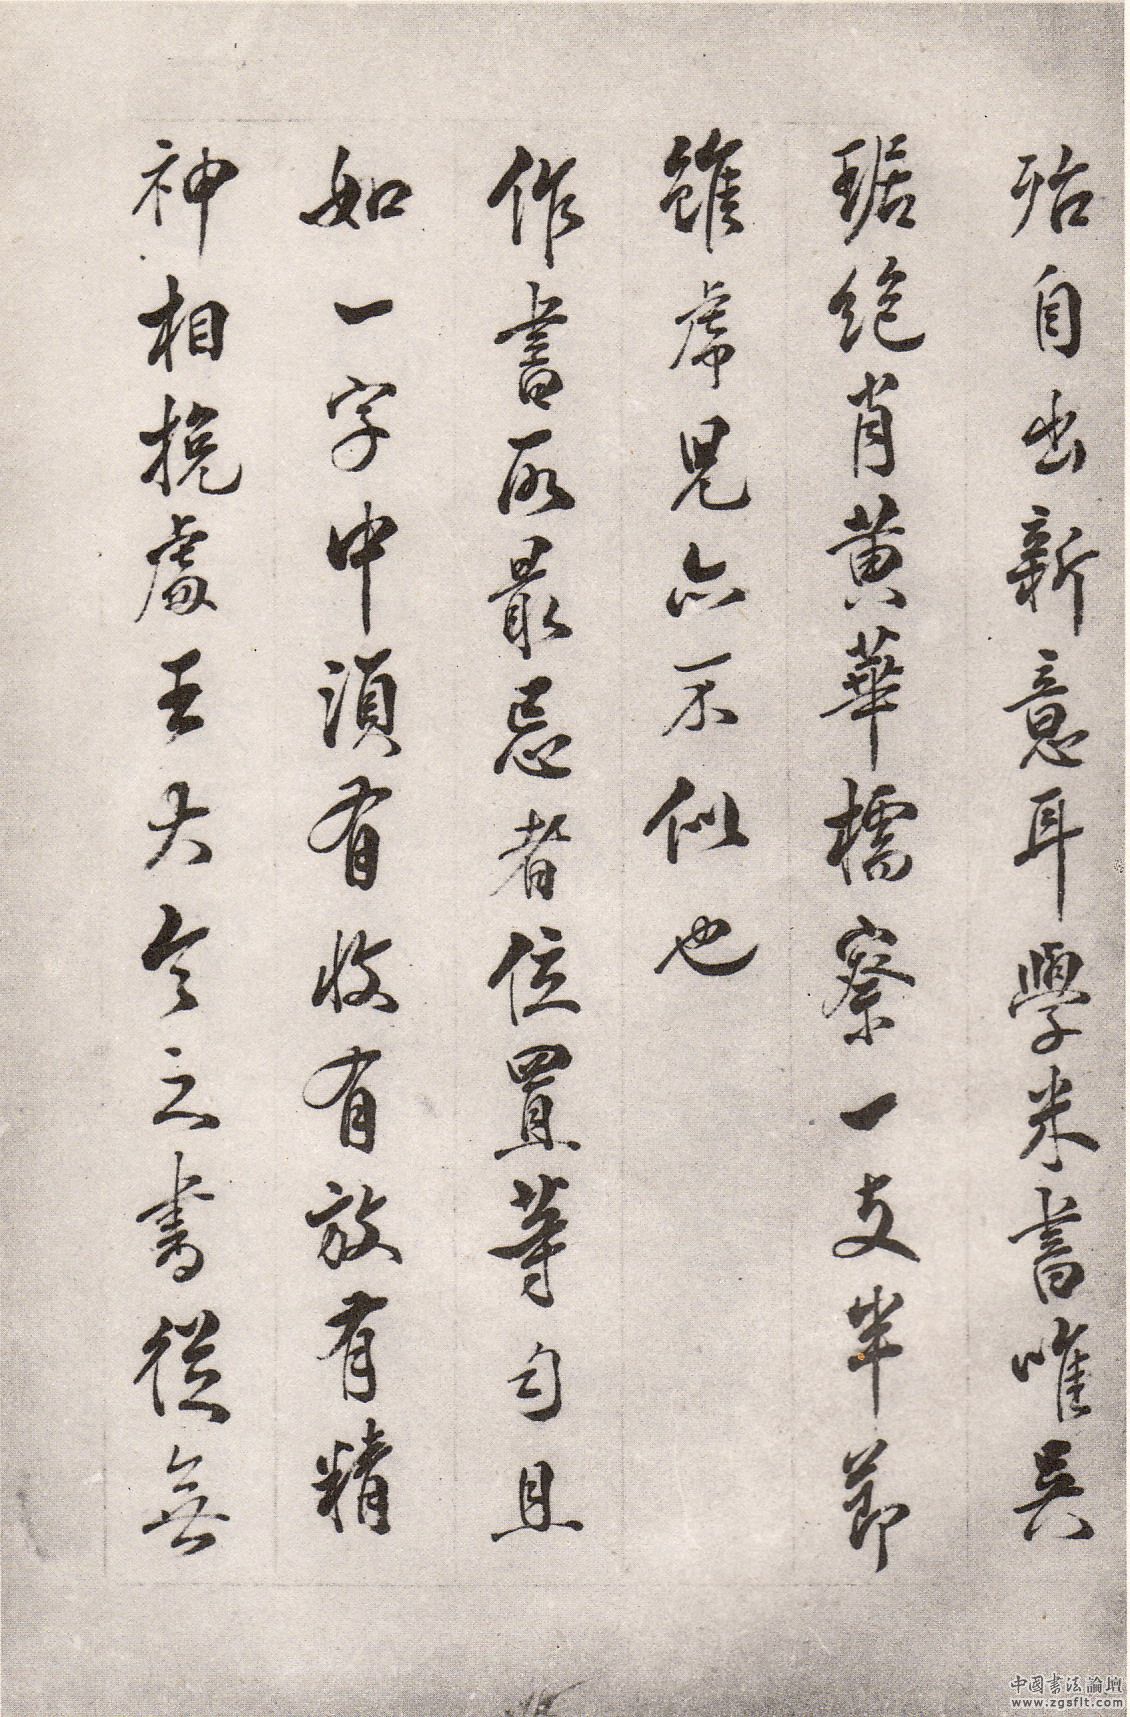 殆自出新意耳學米書唯吳
琚絶肖黄華樗寮一支半節
雖虎兒亦不似也
作書所最忌者位置等勻且
如一字中須有收有放有精
神相挽處王大令之書從無
中国书法論壇
www.zgsflt.com